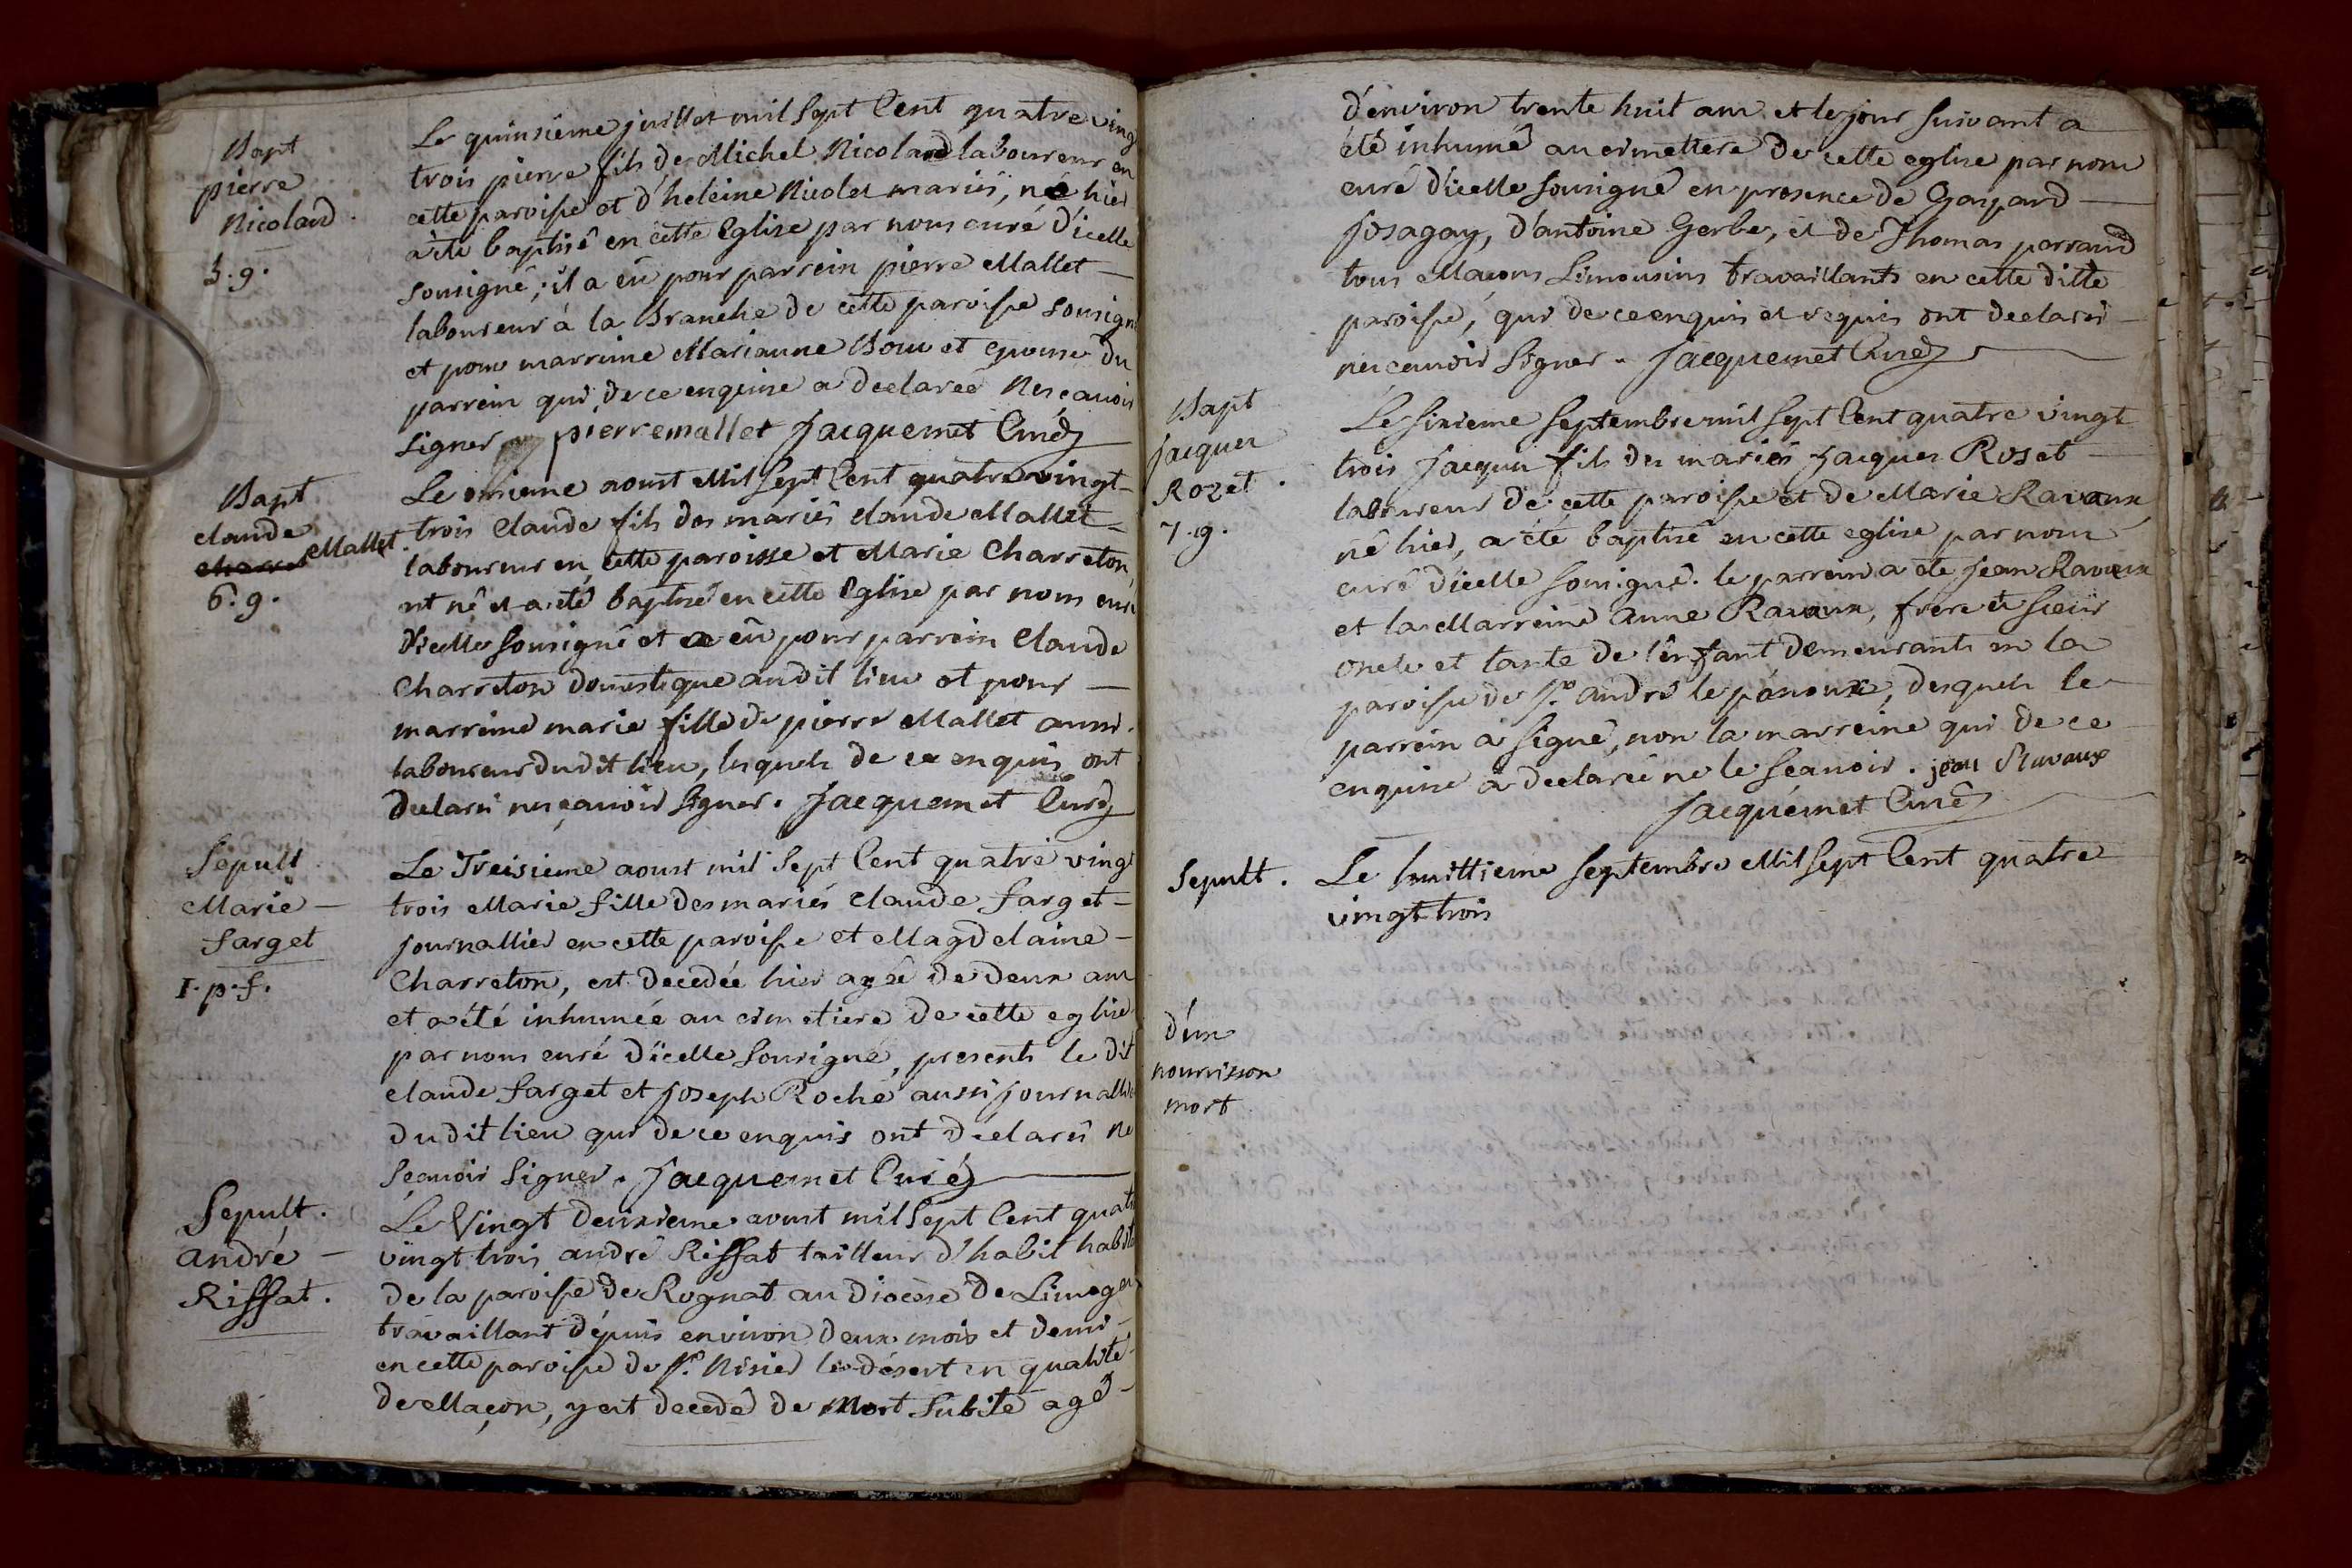 Bapt
pierre
Nicolard.
5.g.
Le quinsieme juillet mil sept Cent quatre ving
trois pierre fils de Michel Nicolard laboureur en
cette paroisse et d'heleine Nicolet mariés, né hier
a été baptisé en cette Eglise par nous curé d'icelle
sousigné; il a eu pour parrein pierre Mallet
laboureur à la Branche de cette paroisse sousigné
et pour marreine Marianne epouse du
parrein qui de ce enquise a declareé ne sçavoir
signer pierre mallet Jacquemet Curé
Bapt
claude
Mallet.
6.g.
Le onsieme aoust Mil sept Cent quatre vingt
trois Claude fils des mariés claude Mallet
laboureur en cette paroisse et Marie Charreton,
est né et a été baptisé en cette Eglise par nous curé
d'icelle sousigné et a eu pour parrein Claude
Charreton domestique audit lieu et pour
marreine marie fille de pierre Mallet aussi
laboureur dudit lieu, lesquels de ce enquis ont
declaré ne sçavoir signer. Jacquemet Curé
Sepult
Marie
farget
1.p.f.
Le Treisieme aoust mil sept Cent quatre vingt
trois Marie fille des mariés Claude farget
journallier en cette paroisse et Magdelaine
Charreton, est decedée hier agée de deux ans
et a été inhumée au cimetiere de cette eglise
par nous curé d'icelle sousigné, presents le dit
claude farget et Joseph Roche aussi journallier
dudit lieu qui de ce enquis ont declaré ne
sçavoir signer. Jacquemet Curé
Sepult.
andré
Riffat.
Le Vingt deuxieme aoust mil sept Cent quatre
vingt trois andré Riffat tailleur d'habit habit
de la paroisse de Rognat au diocèse de Limoges
travaillant depuis environ deux mois et demi
en cette paroisse de St. Nisier le desert en qualité
de Maçon, y est decedé de Mort subite agé
d'environ trente huit ans et le jour suivant a
été inhumé au cimettere de cette eglise par nous
curé d'icelle sousigné en presence de Gaspard
Josagay, d'antoine Gerbe, et de Thomas parraud
tous Maçons Limousins travaillants en cette ditte
paroisse, qui de ce enquis et requis ont declaré
ne sçavoir signer. Jacquemet Curé
Bapt
Jacques
Rozet.
7.g.
Le sixieme septembre mil sept Cent quatre vingt
trois Jacques fils des mariés Jacques Roset
laboureur de cette paroisse et de Marie Ravaux
né hier, a été baptisé en cette eglise par nous
curé d'icelle sousigné. le parrein a été Jean Ravaux
et la Marreine Anne Ravaux, frere et soeur
oncle et tante de l'enfant demeurants en la
paroisse de St. andré le panoux, desquels le
parrein a signé, non la marreine qui de ce
enquise a declaré ne le sçavoir. jean Ravaux
Jacquemet Curé
Sepult.
Le huittieme septembre Mil sept Cent quatre
vingt trois
d'un
nourrisson
mort